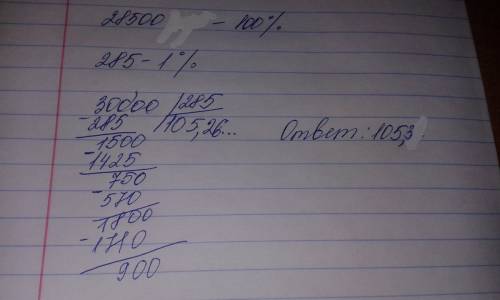 28500 - 100%
285 - 1%
30000 | 285
- 285 105,26...
1500
- 1425
750
- 570
1800
- 1710
900
Ответ: 105,3